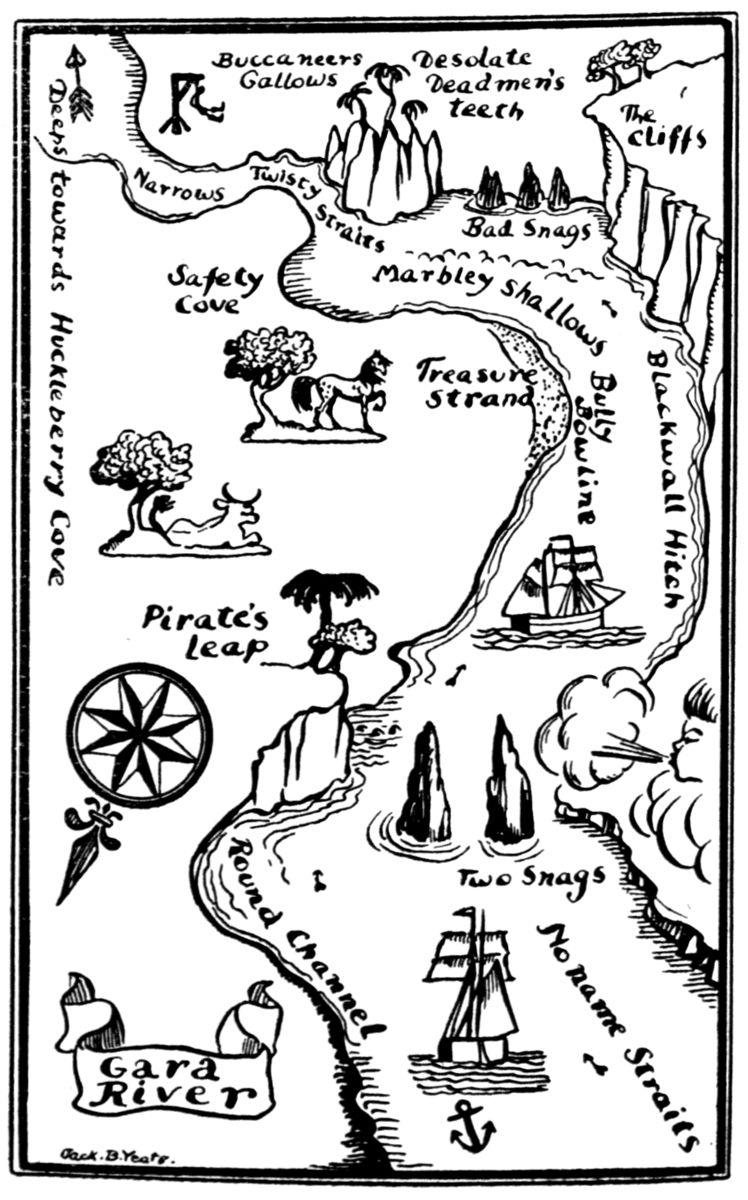 Buccaneers
Gallows
Desolate
Deadmen's
teeth
The
Cliffs
Deeps towards Huckleberry Cove
Narrows
Twisty Straits
Bad Snags
Safety
Cove
Marbley Shallows
Treasure
Strand
Bully
Bowline
Blackwall Hitch
Pirate's
Leap
Two Snags
Round Channel
No name Straits
Gara
River
Jack. B. Yeats.